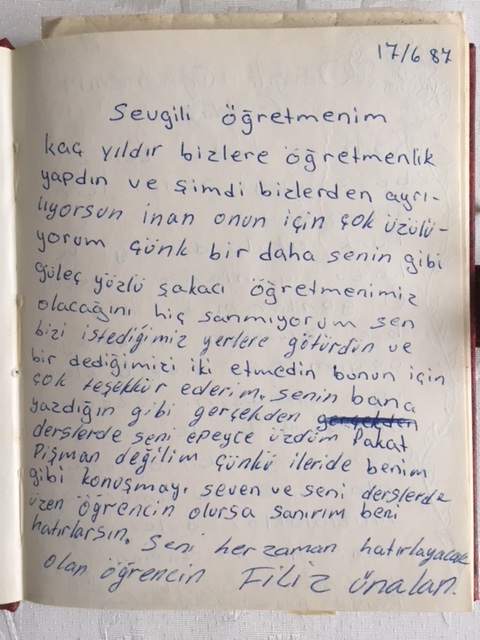 17/6 87
Sevgili öğretmenim
kaç yıldır bizlere öğretmenlik
yapdın ve şimdi bizlerden ayrı-
lıyorsun inan onun için çok üzülü-
yorum çünk bir daha senin gibi
güleç yüzlü şakacı öğretmenimiz
olacağını hiç sanmıyorum sen
bizi istediğimiz yerlere götürdün ve
bir dediğimizi iki etmedin bunun için
çok teşekkür ederim. senin bana
yazdığın gibi gerçekden gerçekden
derslerde seni epeyce üzdüm Fakat
Pişman değilim çünkü ileride benim
gibi konuşmayı seven ve seni derslerde
üzen öğrencin olursa sanırım beni
hatırlarsın. Seni her zaman hatırlayacak
olan öğrencin Filiz Ünalan.